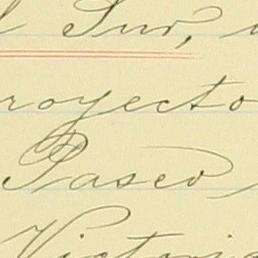 l Sur,
royecto
Paseo
Victoria